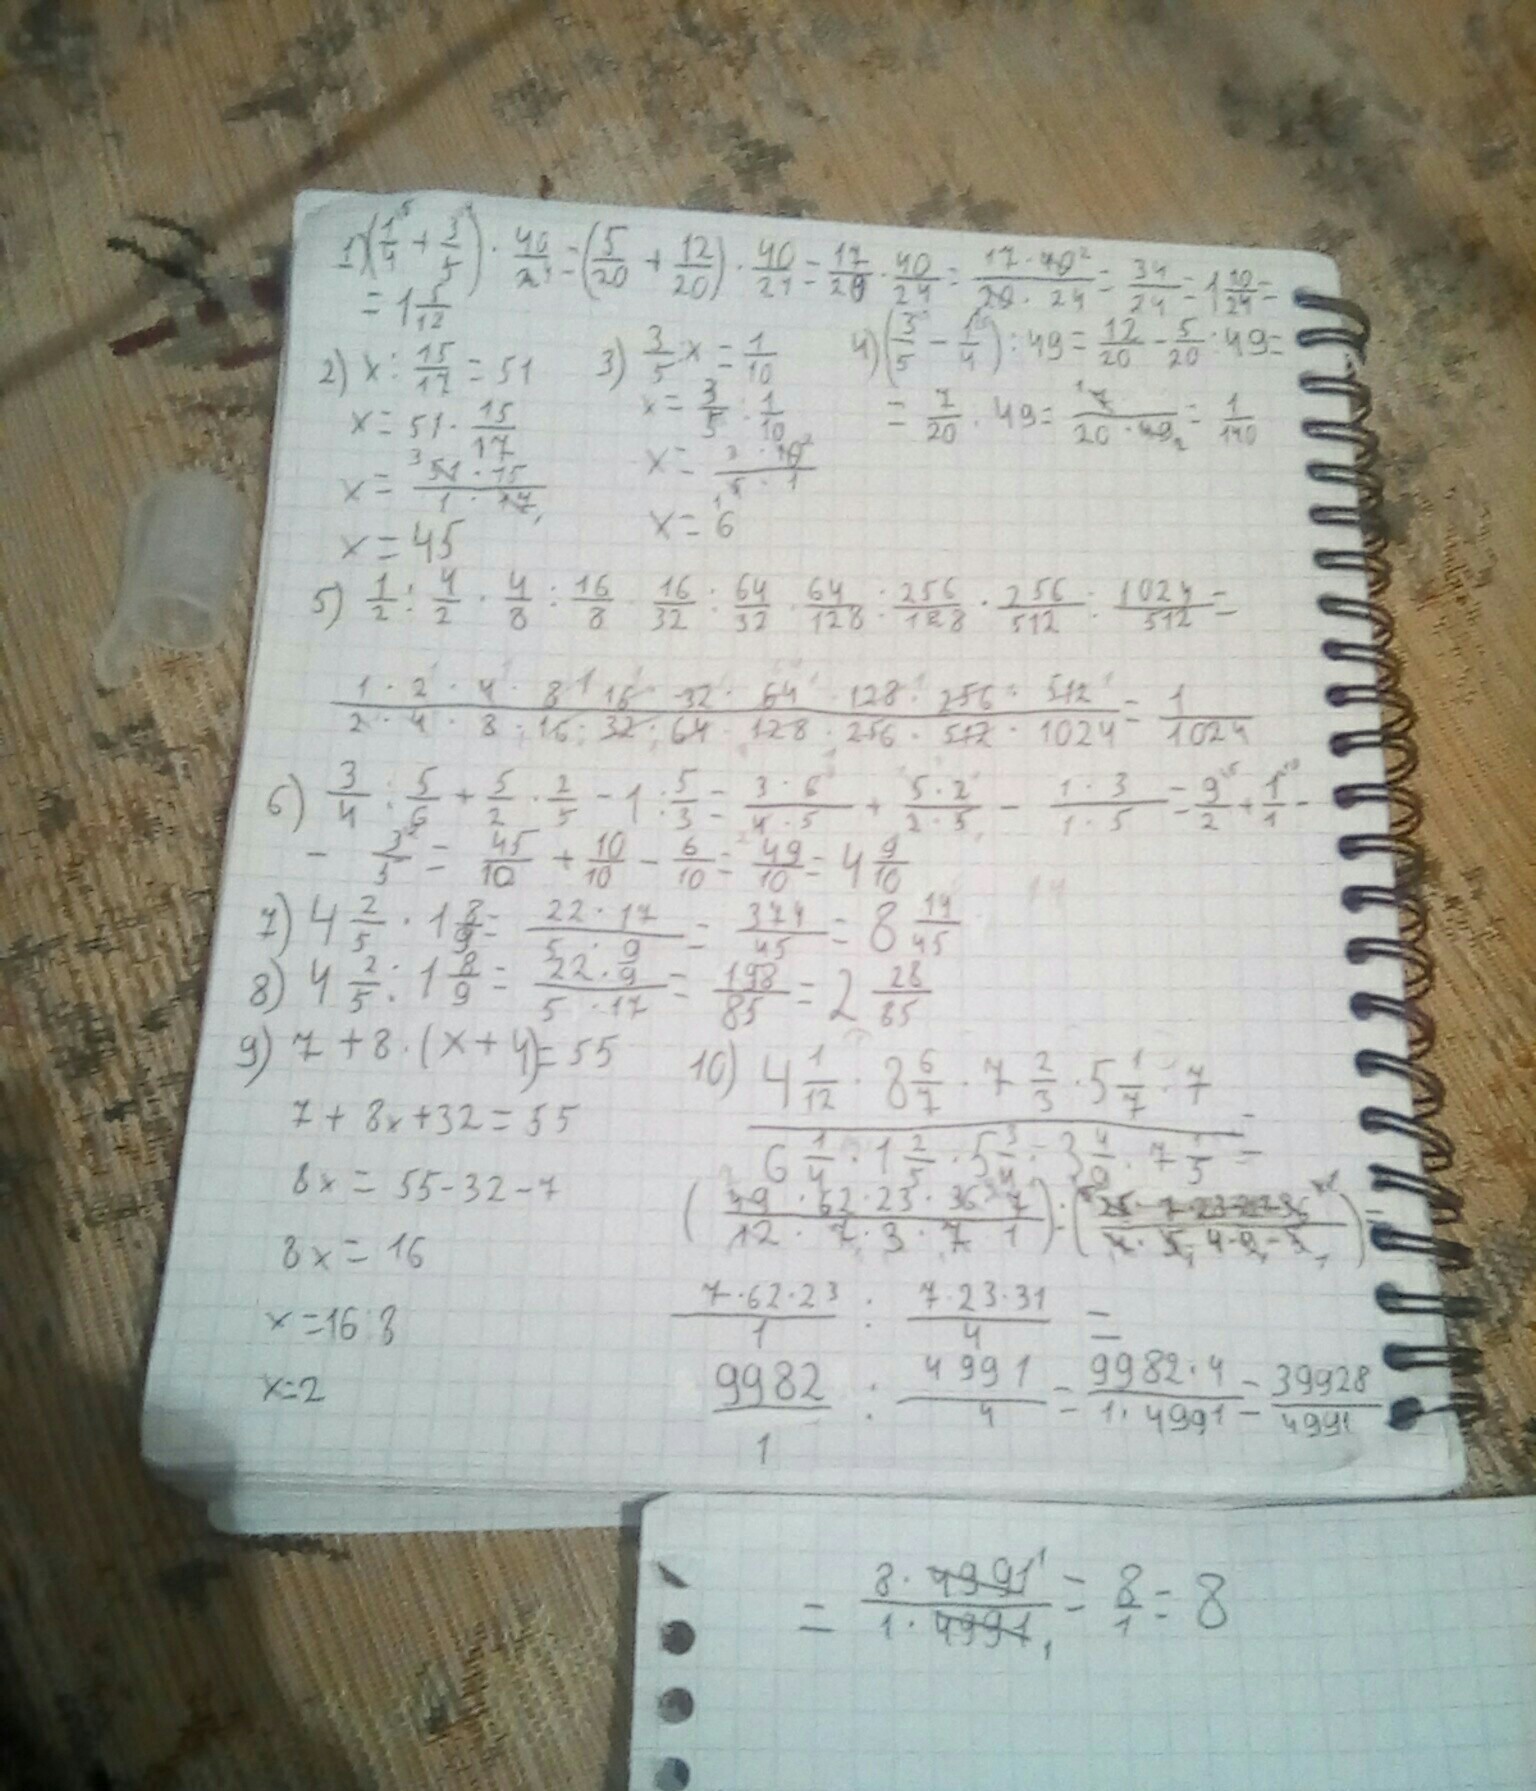 1) (1/4 + 3/5) · 40/24 = (5/20 + 12/20) · 40/24 = 17/20 · 40/24 = 17·40/20·24 = 34/24 = 1 10/24 =
= 1 5/12
2) x : 15/17 = 51
x = 51 · 15/17
x = 51·15/1·17
x = 45
3) 3/5 : x = 1/10
x = 3/5 : 1/10
x = 3·10/5·1
x = 6
4) (3/5 - 1/4) : 49 = 12/20 - 5/20 : 49 =
= 7/20 · 49 = 7/20·49 = 1/140
5) 1/2 : 4/2 · 4/8 : 16/8 · 16/32 : 64/32 · 64/128 : 256/128 · 256/512 : 1024/512 =
1·2·4·8·16·32·64·128·256·512/2·4·8·16·32·64·128·256·512·1024 = 1/1024
6) 3/4 : 5/6 + 5/2 · 2/5 - 1 : 5/3 = 3·6/4·5 + 5·2/2·5 - 1·3/1·5 = 9/2 + 1/1 -
- 3/5 = 45/10 + 10/10 - 6/10 = 49/10 = 4 9/10
7) 4 2/5 · 1 8/9 = 22·17/5·9 = 374/45 = 8 14/45
8) 4 2/5 : 1 8/9 = 22·9/5·17 = 198/85 = 2 28/85
9) 7 + 8 · (x + 4) = 55
7 + 8x + 32 = 55
8x = 55 - 32 - 7
8x = 16
x = 16 : 8
x = 2
10) 4 1/12 · 8 6/7 · 7 2/3 · 5 1/7 · 7/6 1/4 · 1 2/5 · 5 3/4 · 3 4/9 · 7 1/5 =
(49·62·23·36·7/12·7·3·7·1) : (25·7·23·31·36/4·5·4·9·5) =
7·62·23/1 : 7·23·31/4 =
9982/1 : 4991/4 = 9982·4/1·4991 = 39928/4991
= 8·4991/1·4991 = 8/1 = 8